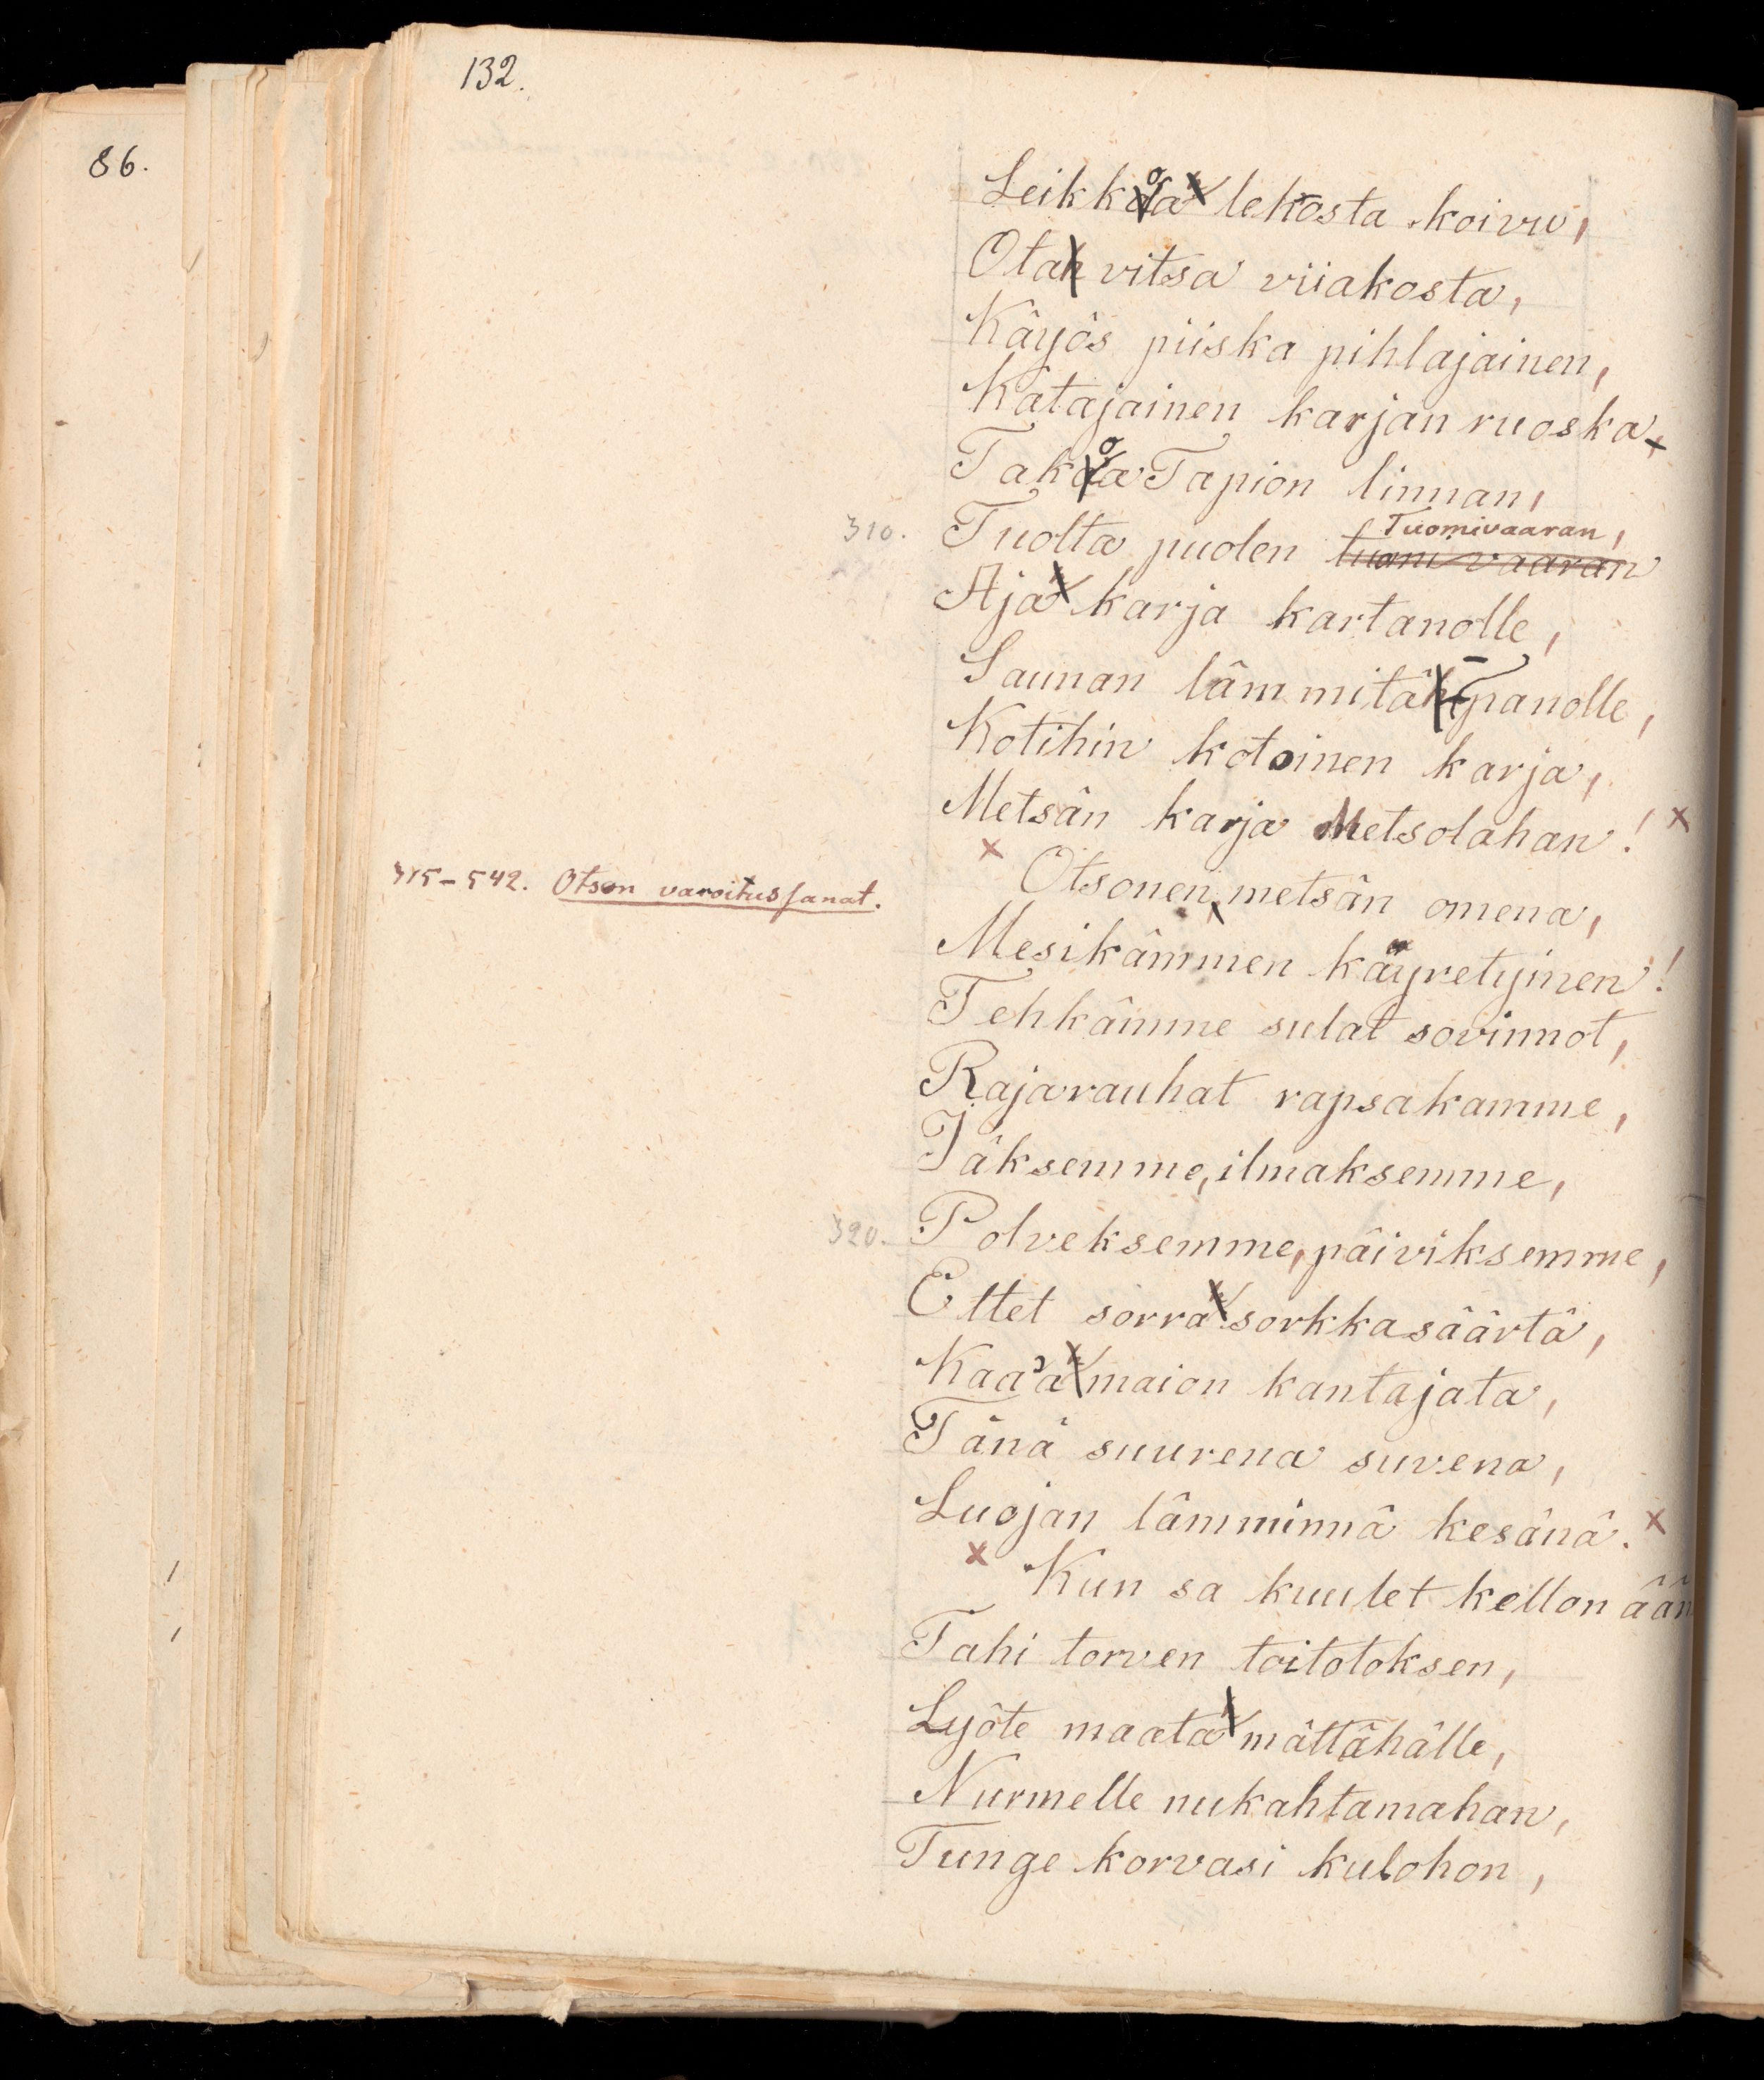 132.
86.
Leikkoa lehosta koivu,
Ota vitsa viiakosta,
Käyös piiska pihlajainen,
Katajainen karjan ruoska,
Takoa Tapion linnan,
310. Tuolta puolen tuomivaaran Tuomivaaran,
Aja karja kartanolle,
Saunan lämmitä-panolle,
Kotihin kotoinen karja,
Metsän karja Metsolahan! x
315-542. Otson varoitussanat.
x Otsonen, metsän omena,
Mesikämmen käyretyinen!
Tehkämme sulat sovinnot,
Rajarauhat rapsakamme,
Jäksemme, ilmaksemme,
320. Polveksemme, päiviksemme,
Ettet sorra sorkkasäärtä,
Kaa'a maion kantajata,
Tänä suurena suvena,
Luojan lämminnä kesänä. x
x Kun sa kuulet kellon ään
Tahi torven toitotoksen,
Lyöte maata mättähälle,
Nurmelle nukahtamahan,
Tunge korvasi kulohon,